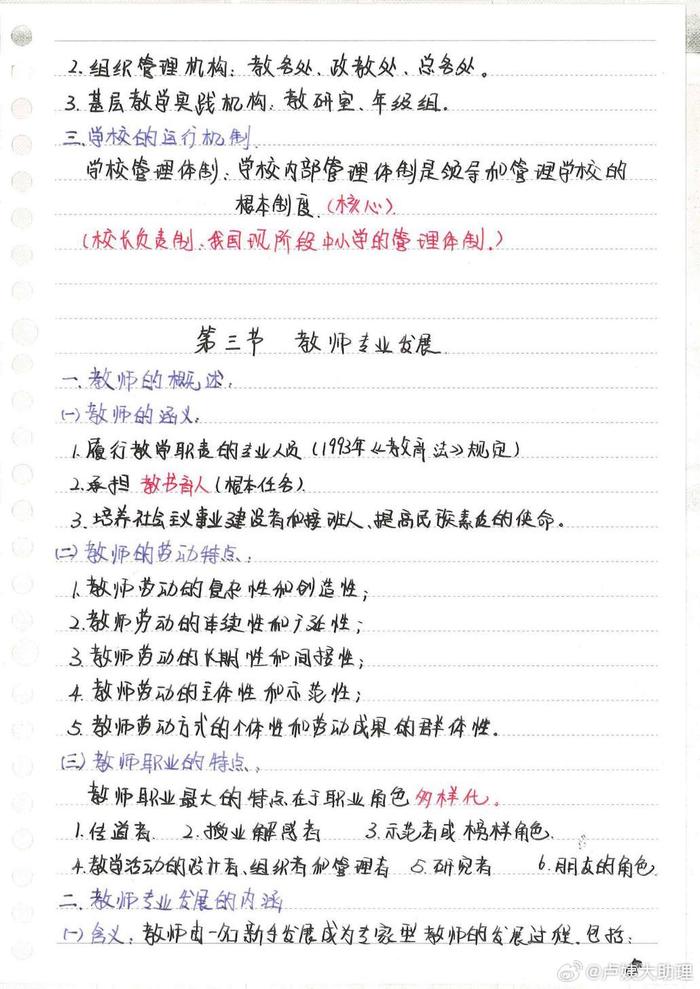 2.组织管理机构：教务处、政教处、总务处。
3.基层教学实践机构：教研室、年级组.
三.学校的运行机制.
学校管理体制：学校内部管理体制是领导和管理学校的
根本制度.(核心).
(校长负责制:我国现阶段中小学的管理体制.)
第三节 教师专业发展
一.教师的概述:
(一)教师的涵义:
1.履行教学职责的专业人员(1993年《教育法》规定)
2.承担教书育人(根本任务).
3.培养社会主义事业建设者和接班人、提高民族素质的使命。
(二)教师的劳动特点:
1.教师劳动的复杂性和创造性;
2.教师劳动的连续性和广延性;
3.教师劳动的长期性和间接性;
4.教师劳动的主体性和示范性;
5.教师劳动方式的个体性和劳动成果的群体性.
(三)教师职业的特点:
教师职业最大的特点在于职业角色多样化。
1.传道者 2.授业解惑者 3.示范者或榜样角色.
4.教学活动的设计者、组织者和管理者 5.研究者 6.朋友的角色
二.教师专业发展的内涵
(一)含义:教师由一名新手发展成为专家型教师的发展过程.包括:
@卢姨大助理